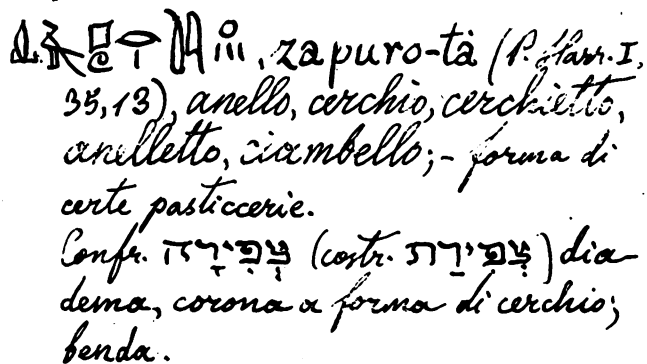 , zapuro-tà (P. Harr. I,
35,13), anello, cerchio, cerchietto,
anelletto, ciambello; - forma di
certe pasticcerie.
Confr. צְפִירָה (costr. צְפִירַת) dia-
dema, corona a forma di cerchio;
benda.